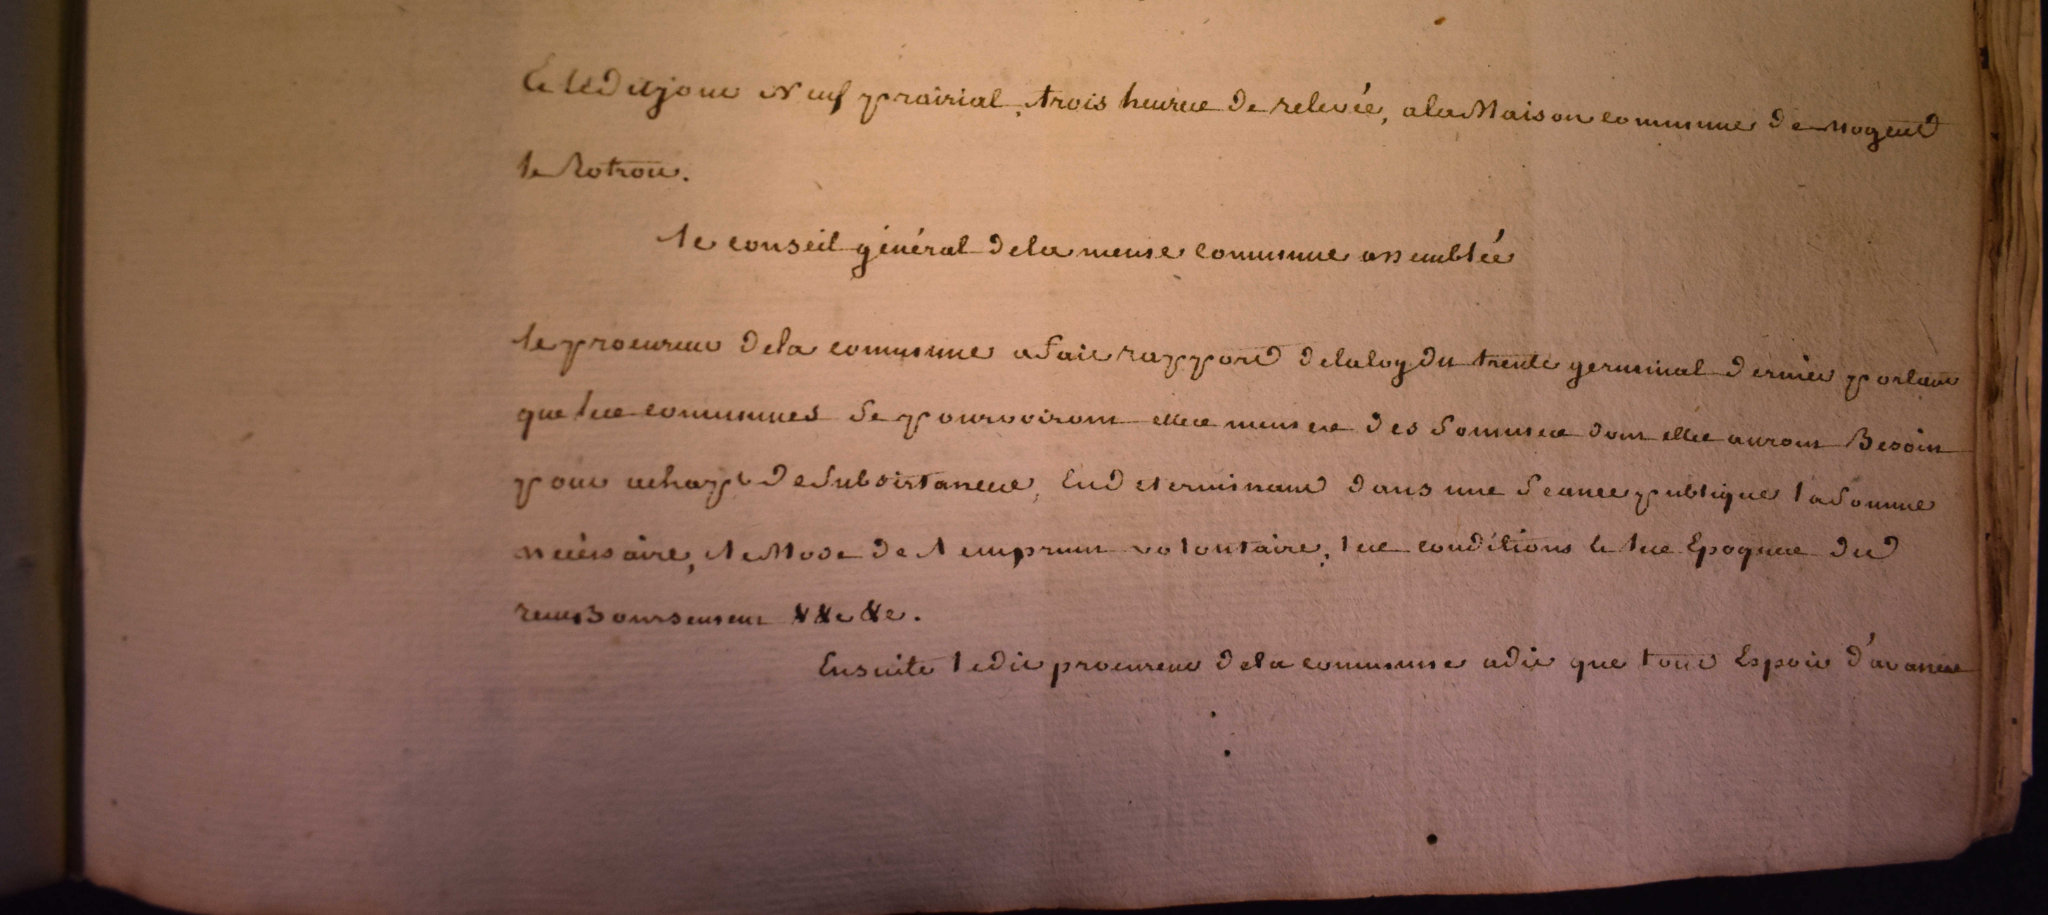 Et led it jour Neuf prairial, trois heures de relevée, a la Maison commune de Nogent
le Rotrou.
le conseil général de la meme commune assemblée
le procureur de la commune a fait rapport de la loy du trente germinal dernier portant
que les communes se pourvoiront elles memes des sommes dont elles auront Besoin
pour achapt de subsistances, En determinant dans une séance publique la somme
nécessaire, le Mode de l emprunt volontaire, les conditions et les Epoques du
remBoursement &&c &c.
Ensuite ledit procureur de la commune a dit que tout Espoir d'avances